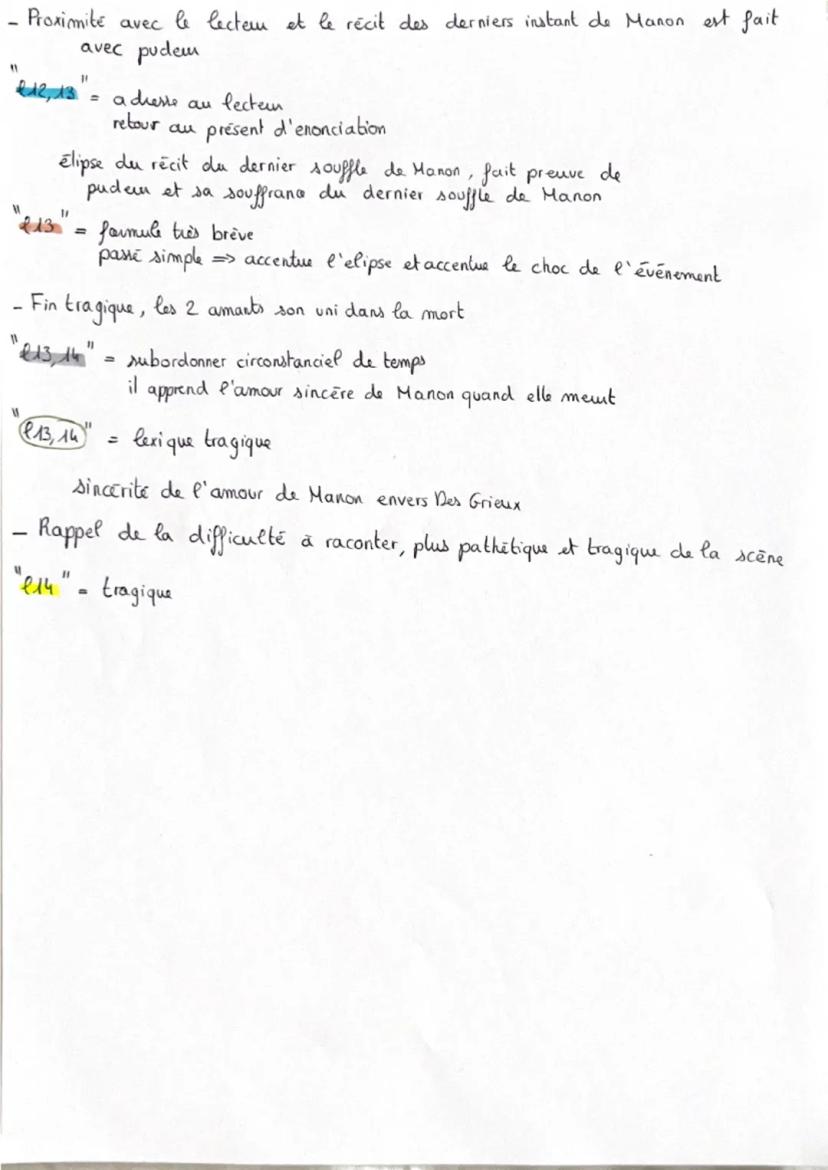 - Proximité avec le lecteur et le récit des derniers instant de Manon est fait
avec pudeur
"l12,13" = adresse au lecteur
retour au présent d'enonciation
élipse du récit du dernier souffle de Manon, fait preuve de
pudeur et sa souffrance du dernier souffle de Manon
"l13" = formule très brève
passé simple => accentue l'elipse et accentue le choc de l'événement
- Fin tragique, les 2 amants son uni dans la mort
"l13,14" = subordonner circonstanciel de temps
il apprend l'amour sincère de Manon quand elle meurt
"l13,14" = lexique tragique
sincérité de l'amour de Manon envers Des Grieux
- Rappel de la difficulté à raconter, plus pathétique et tragique de la scène
"l14" = tragique